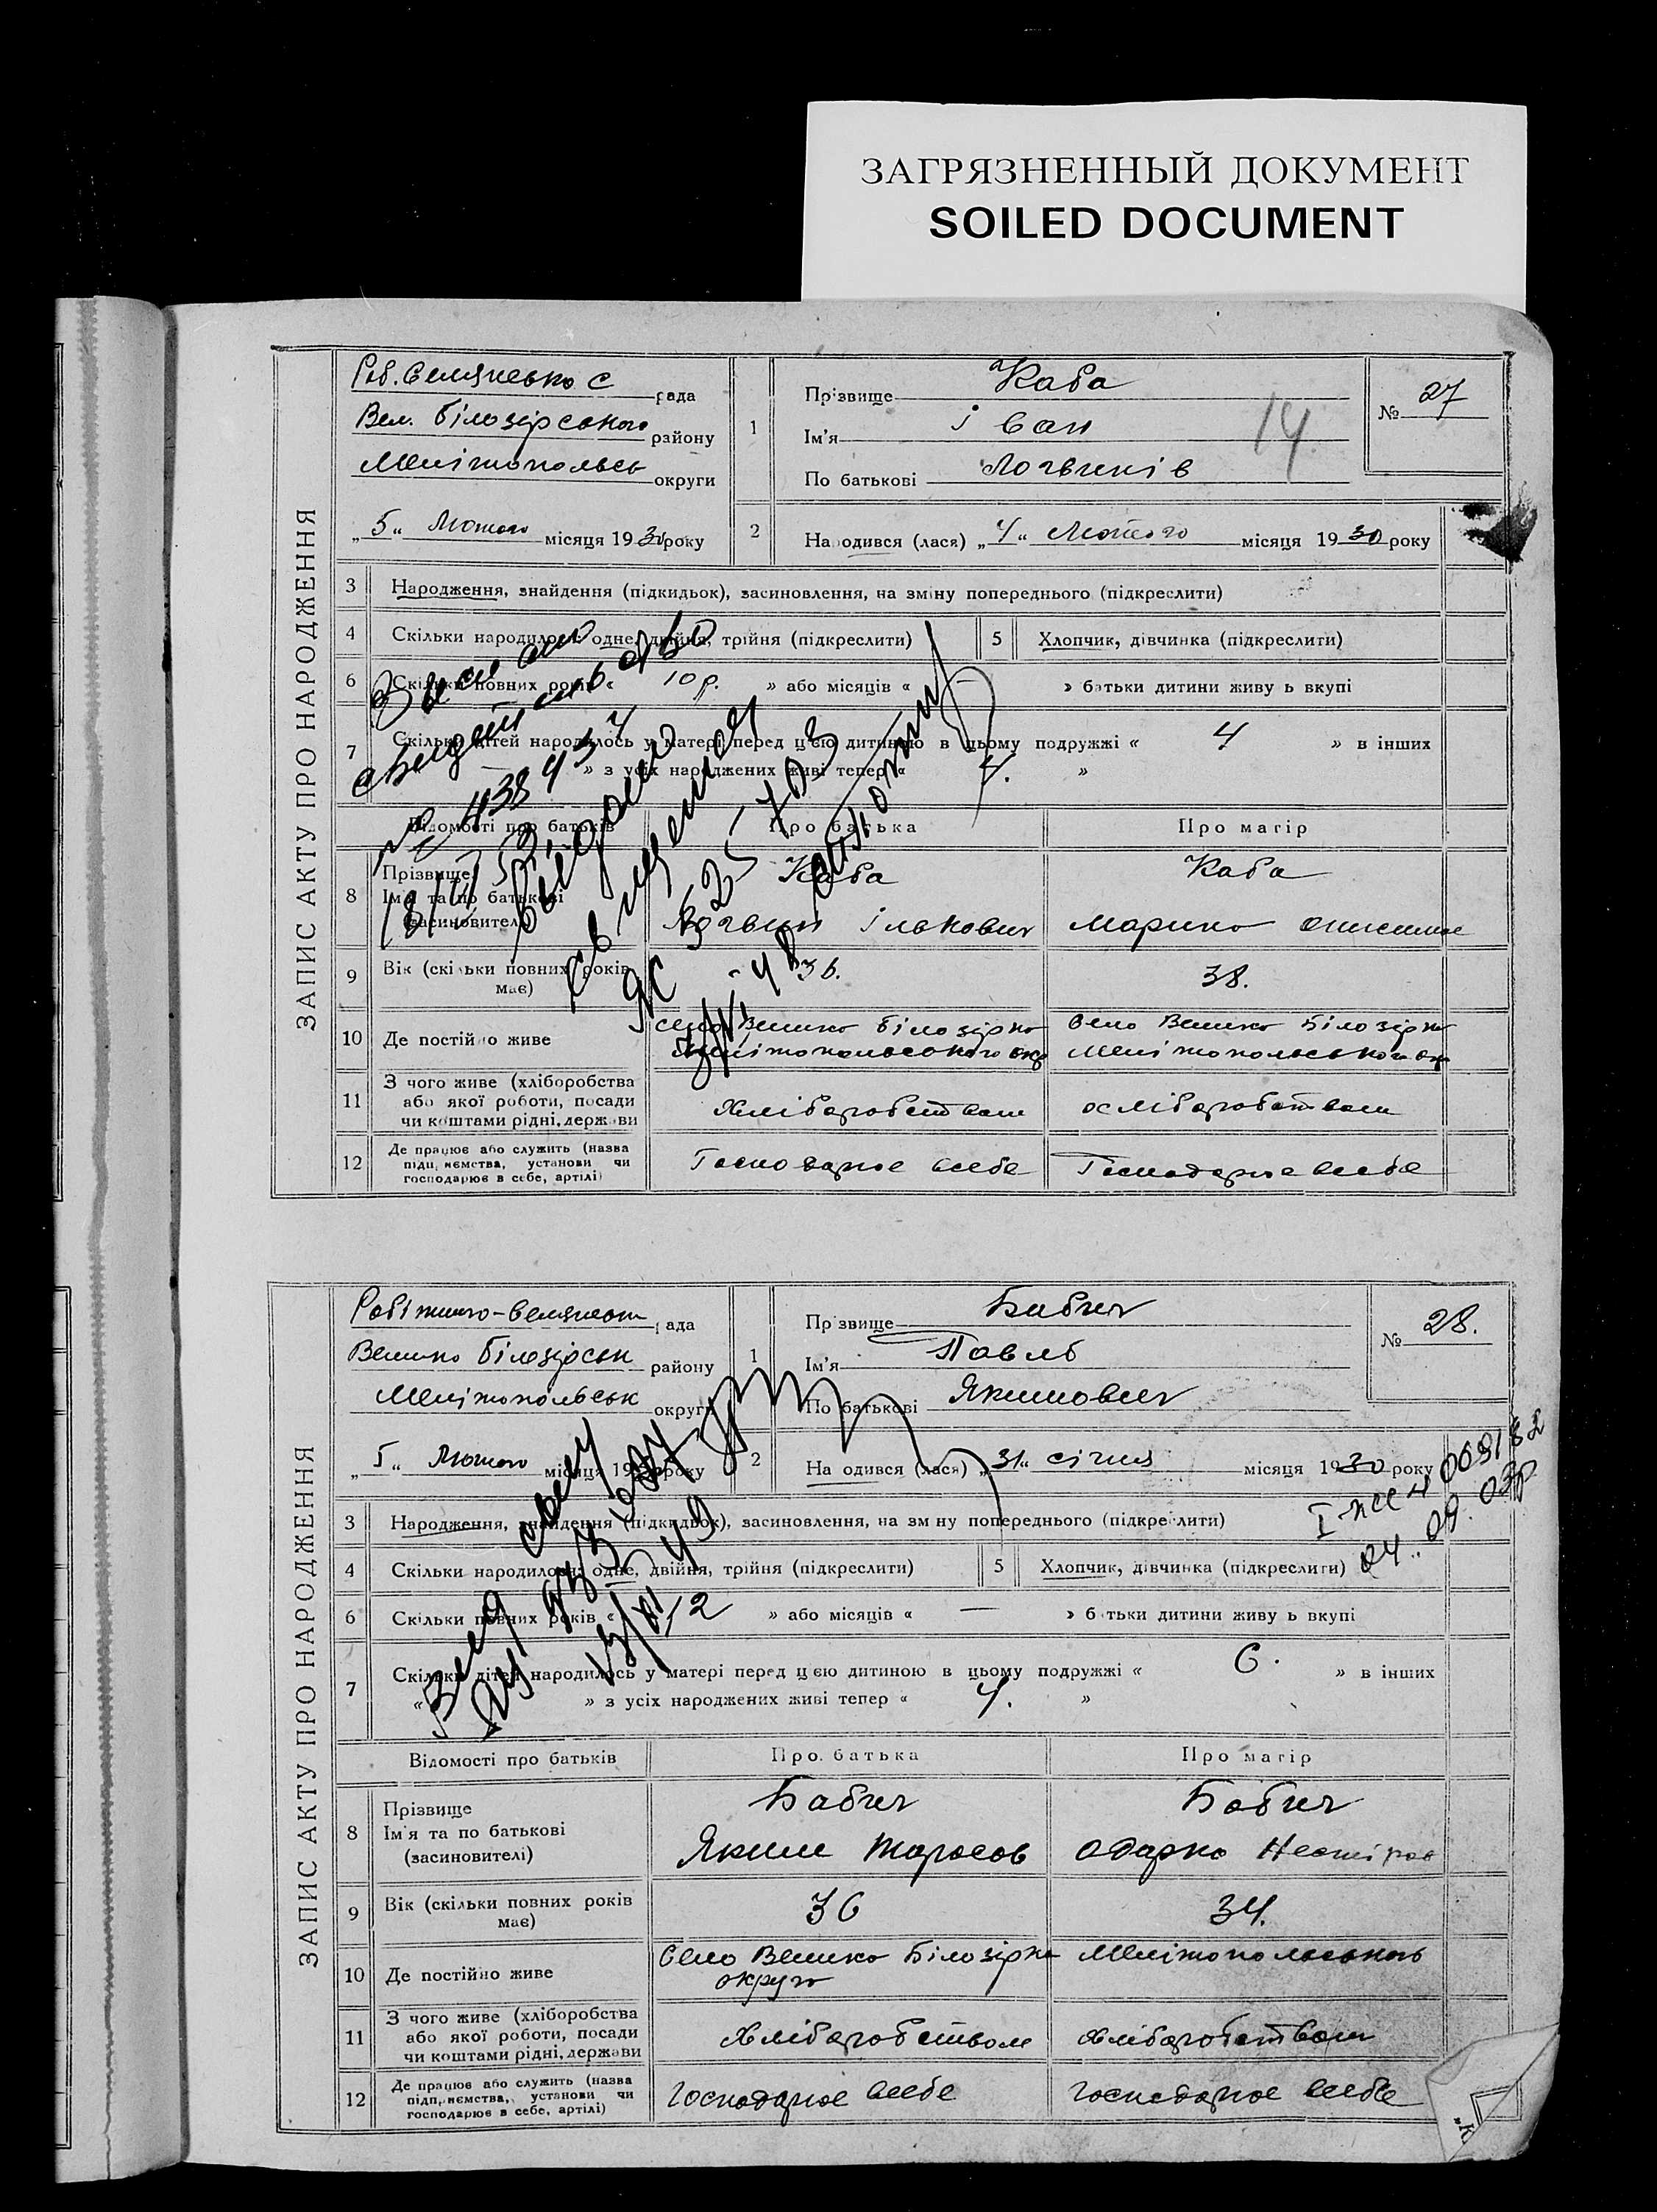 ЗАГРЯЗНЕННЫЙ ДОКУМЕНТ
SOILED DOCUMENT
ЗАПИС АКТУ ПРО НАРОДЖЕННЯ
Роб. Селянсько С рада
Вел. Білозірського району
Мелітопольсь округи
„ 5 “ Лютого місяця 1930 року
1
Прізвище Каба
Ім’я Іван
По батькові Логвинів
14
№ 27
2
Народився (лася) „ 4 “ Лютого місяця 1930 року
3 Народження, знайдення (підкидьок), засиновлення, на зміну попереднього (підкреслити)
4 Скільки народилось: одне, двійня, трійня (підкреслити)
5 Хлопчик, дівчинка (підкреслити)
6 Скільки повних років « 10 р. » або місяців « » батьки дитини живуть вкупі
7 Скільки дітей народилось у матері перед цією дитиною в цьому подружжі « 4 » в інших
» з усіх народжених живі тепер « 4. »
Відомості про батьків Про батька Про матір
8 Прізвище
Ім’я та по батькові
(засиновителі)
Каба
Логвин Ількович
Каба
Марина
9 Вік (скільки повних років має)
36.
38.
10 Де постійно живе
село Велико Білозірка
Мелітопольського окр
Село Велико Білозірка
Мелітопольського окр
11 З чого живе (хліборобства
або якої роботи, посади
чи коштами рідні, держави
Хліборобством
хліборобством
12 Де працює або служить (назва
підприємства, установи чи
господарює в себе, артілі)
Господарює в себе
Господарює в себе
№ 438437
Выдано
ЗАПИС АКТУ ПРО НАРОДЖЕННЯ
Робітничо-Селянськ рада
Велико Білозірськ району
Мелітопольськ округи
„ 5 “ Лютого місяця 1930 року
1
Прізвище Бабич
Ім’я Павло
По батькові Якимович
№ 28.
2
Народився (лася) „ 31 “ січня місяця 1930 року
3 Народження, знайдення (підкидьок), засиновлення, на зміну попереднього (підкреслити)
4 Скільки народилось: одне, двійня, трійня (підкреслити)
5 Хлопчик, дівчинка (підкреслити)
04.09.03р
6 Скільки повних років « 12 » або місяців « — » батьки дитини живуть вкупі
7 Скільки дітей народилось у матері перед цією дитиною в цьому подружжі « 6. » в інших
« » з усіх народжених живі тепер « 4. »
Відомості про батьків Про батька Про матір
8 Прізвище
Ім’я та по батькові
(засиновителі)
Бабич
Яким Тарасов
Бабич
Одарка
9 Вік (скільки повних років має)
36
34.
10 Де постійно живе
Село Велико Білозірка Мелітопольського
округи
11 З чого живе (хліборобства
або якої роботи, посади
чи коштами рідні, держави
Хліборобством
хліборобством
12 Де працює або служить (назва
підприємства, установи чи
господарює в себе, артілі)
Господарює в себе
господарює в себе